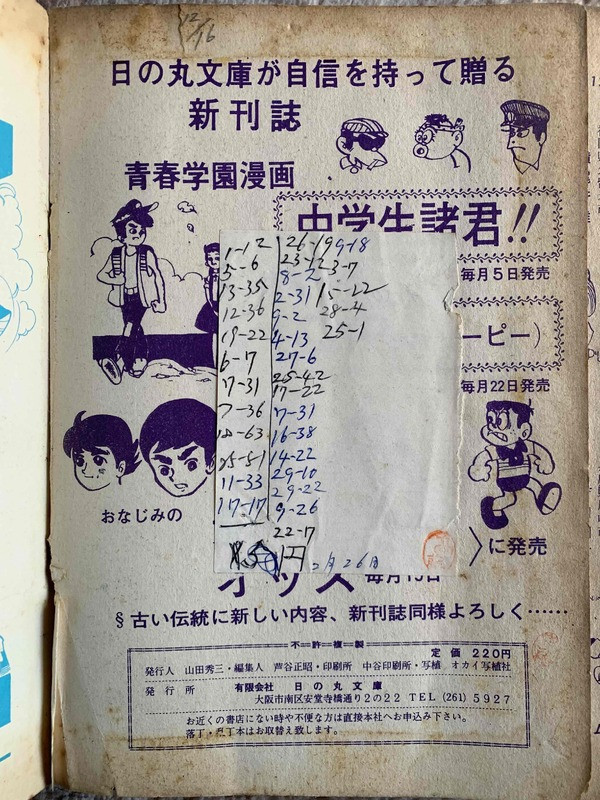 12/16
日の丸文庫が自信を持って贈る
新刊誌
青春学園漫画
中学生諸君!!
毎月5日発売
ーピー)
毎月22日発売
おなじみの
〉に発売
オッス 毎月15日
§古い伝統に新しい内容、新刊誌同様よろしく……
1-12
5-6
13-35
12-36
19-22
6-7
17-31
7-36
18-63
25-51
11-33
17-17
26-19
8-2
2-31
9-2
4-13
27-6
25-42
17-22
17-31
16-38
14-22
29-10
29-22
9-26
22-7
1円
9-18
23-7
15-22
28-4
25-1
2月26日
不許複製
定価 220円
発行人 山田秀三・編集人 芦谷正昭・印刷所 中谷印刷所・写植 オカイ写植社
発行所 有限会社 日の丸文庫
大阪市南区安堂寺橋通り2の22 TEL (261) 5927
お近くの書店にない時や不便な方は直接本社へお申込み下さい。
落丁・乱丁本はお取替え致します。